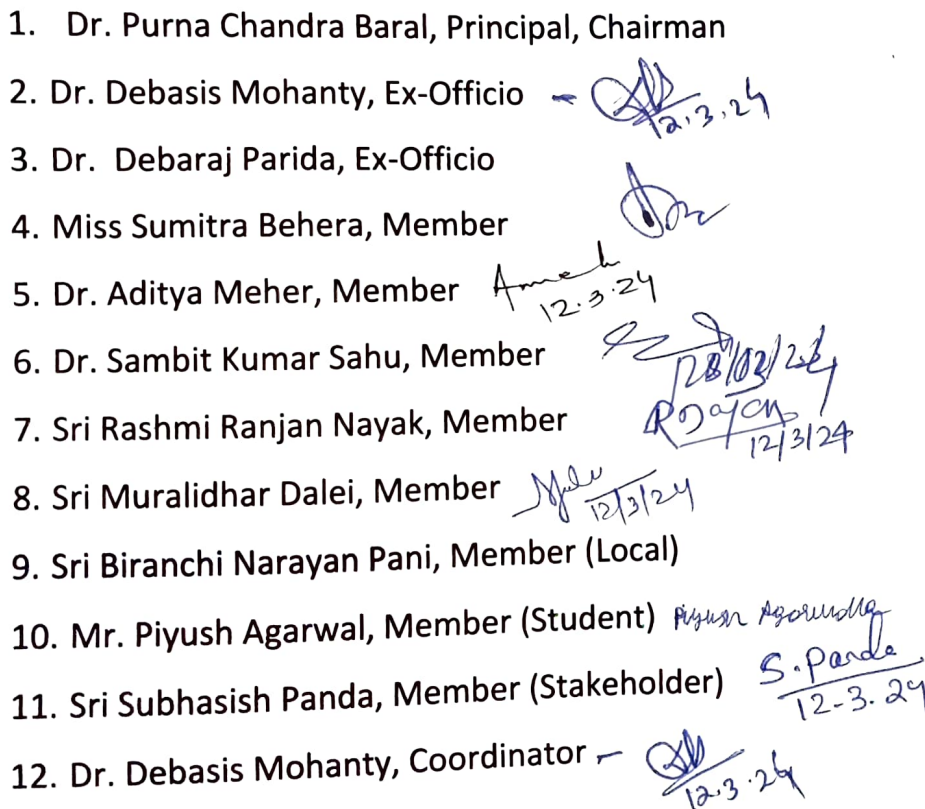 1. Dr. Purna Chandra Baral, Principal, Chairman
2. Dr. Debasis Mohanty, Ex-Officio - 12.3.24
3. Dr. Debaraj Parida, Ex-Officio
4. Miss Sumitra Behera, Member
5. Dr. Aditya Meher, Member 12.3.24
6. Dr. Sambit Kumar Sahu, Member
7. Sri Rashmi Ranjan Nayak, Member 12/3/24
8. Sri Muralidhar Dalei, Member 12/3/24
9. Sri Biranchi Narayan Pani, Member (Local)
10. Mr. Piyush Agarwal, Member (Student)
11. Sri Subhasish Panda, Member (Stakeholder) S. Panda
12-3.24
12. Dr. Debasis Mohanty, Coordinator - 12.3.24